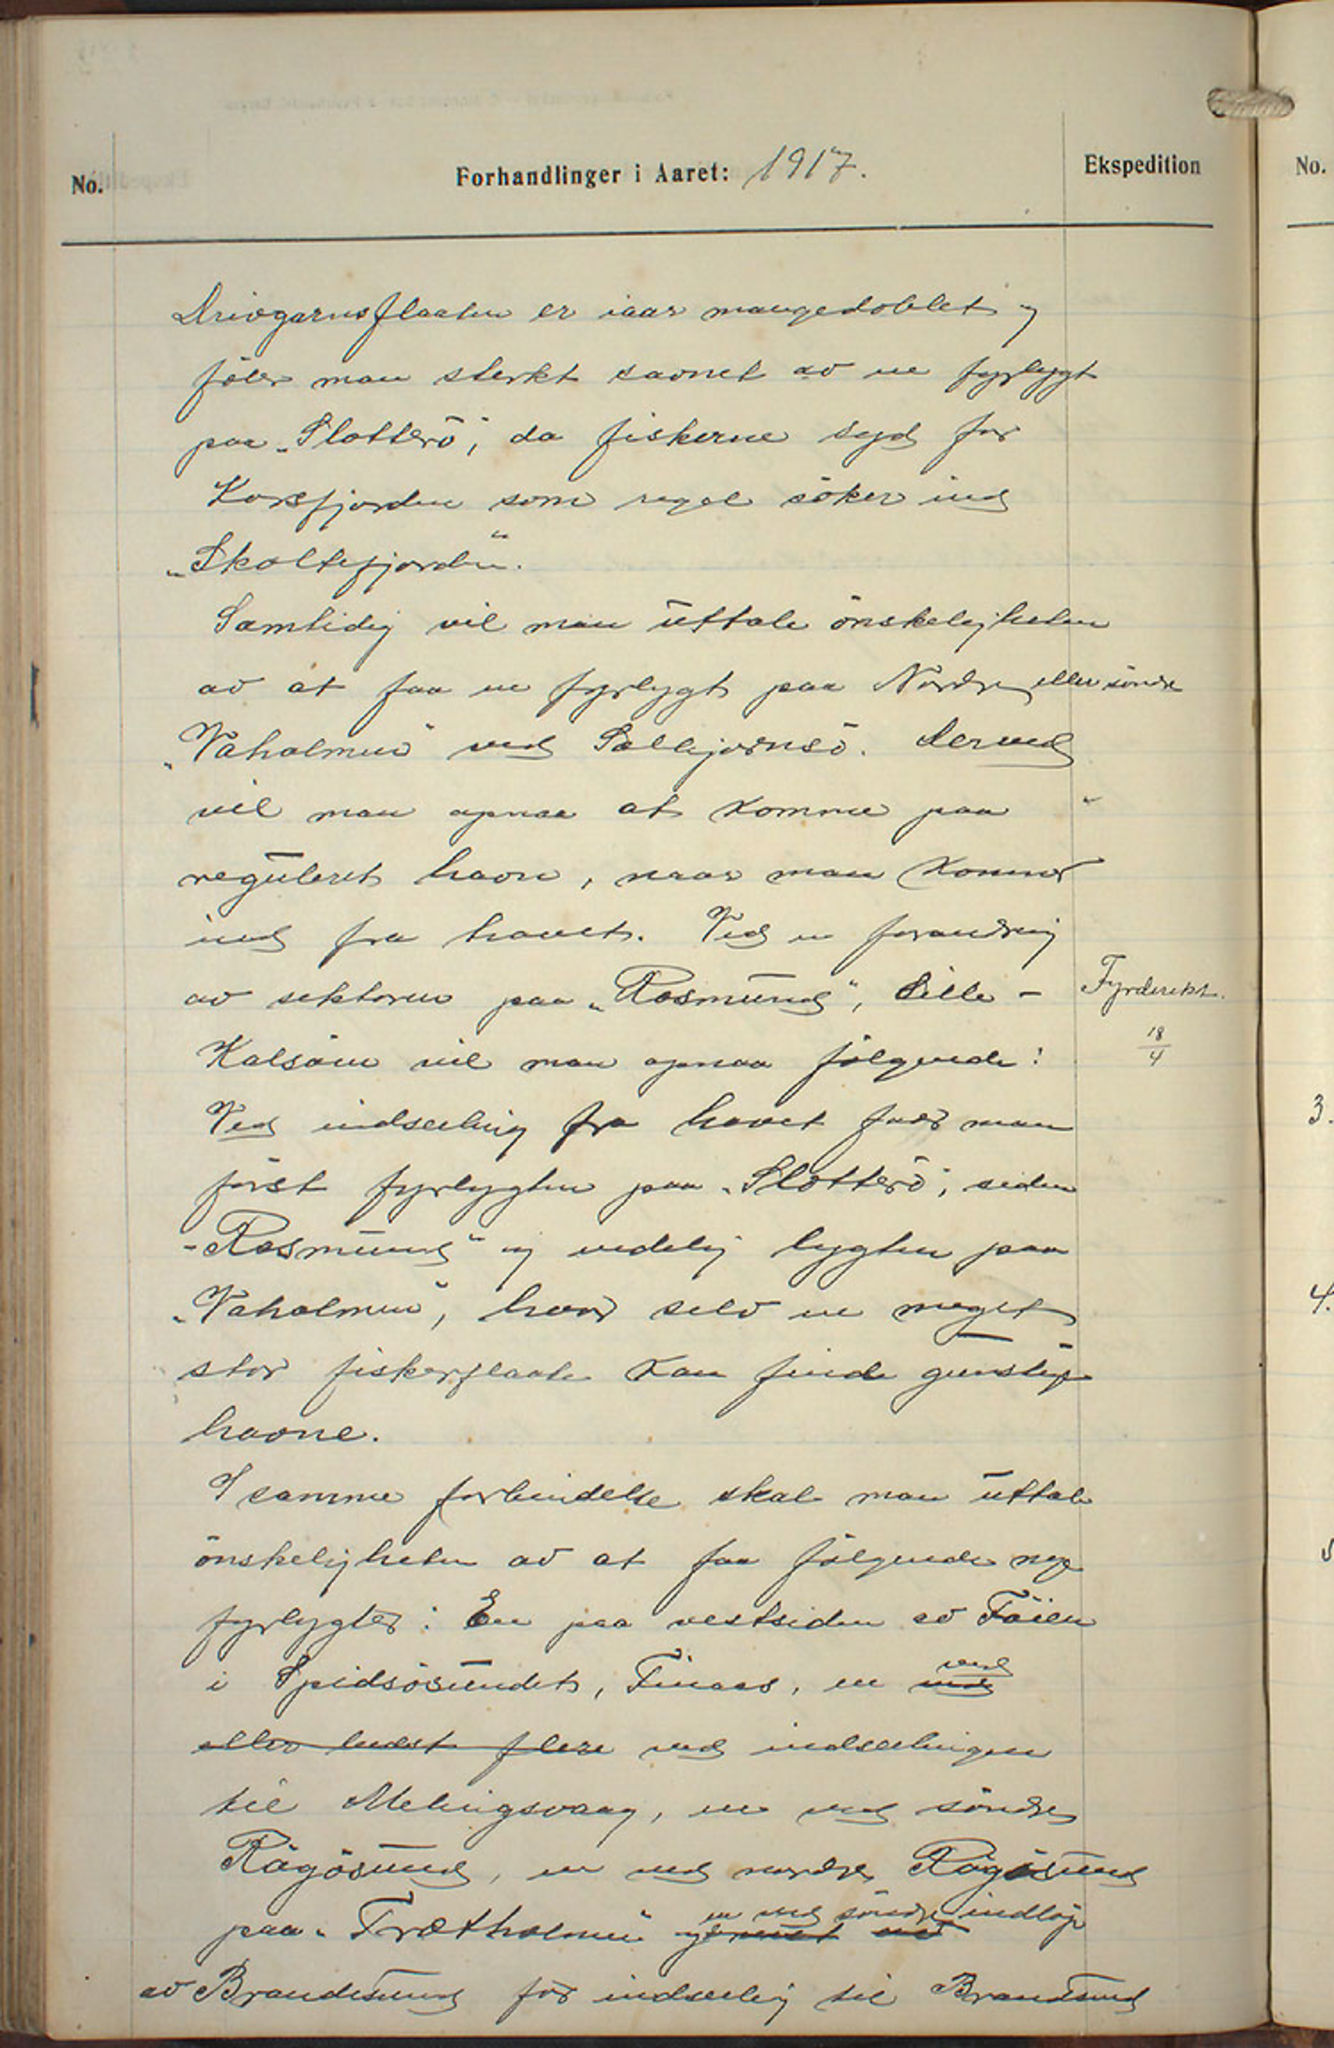 No. Forhandlinger i Aaret: 1917. Ekspedition No.
Drivgarnsflaaten er iaar mangedoblet og
föler man sterkt savnet av en fyrlygt
paa „Slotterö”, da fiskerne syd for
Korsfjorden som regel söker ind
„Skoltefjorden”.
Samtidig vil man uttale önskeligheten
av at faa en fyrlygt paa Nordre eller söndre
„Vaholmen” ved Selbjornsö. Derved
vil man opnaa at komme paa
reguleret havn, naar man kommer
ind fra havet. Ved en forandring
av sektoren paa „Rosmund”, Lille-
Kalsöen vil man opnaa fölgende:
Fyrdirekt.
18/4
Ved indseiling fra havet faar man
först fyrlygten paa „Slotterö”, siden
„Rosmund” og endelig lygten paa
„Vaholmen”, hvor selv en meget
stor fiskerflaate kan finde gunstige
havne.
I samme forbindelse skal man uttale
önskeligheten av at faa fölgende nye
fyrlygter: En paa vestsiden av Föien
i Spidsösundet, Finaas, en ved
eller helst flere ved indseilingen
til Melingsvaag, en ved söndre
Rägösund, en ved nordre Rägösund
paa „Trætholmen” en ved söndre indlöp
av Brandesund for indseiling til Brandsund
3.
4.